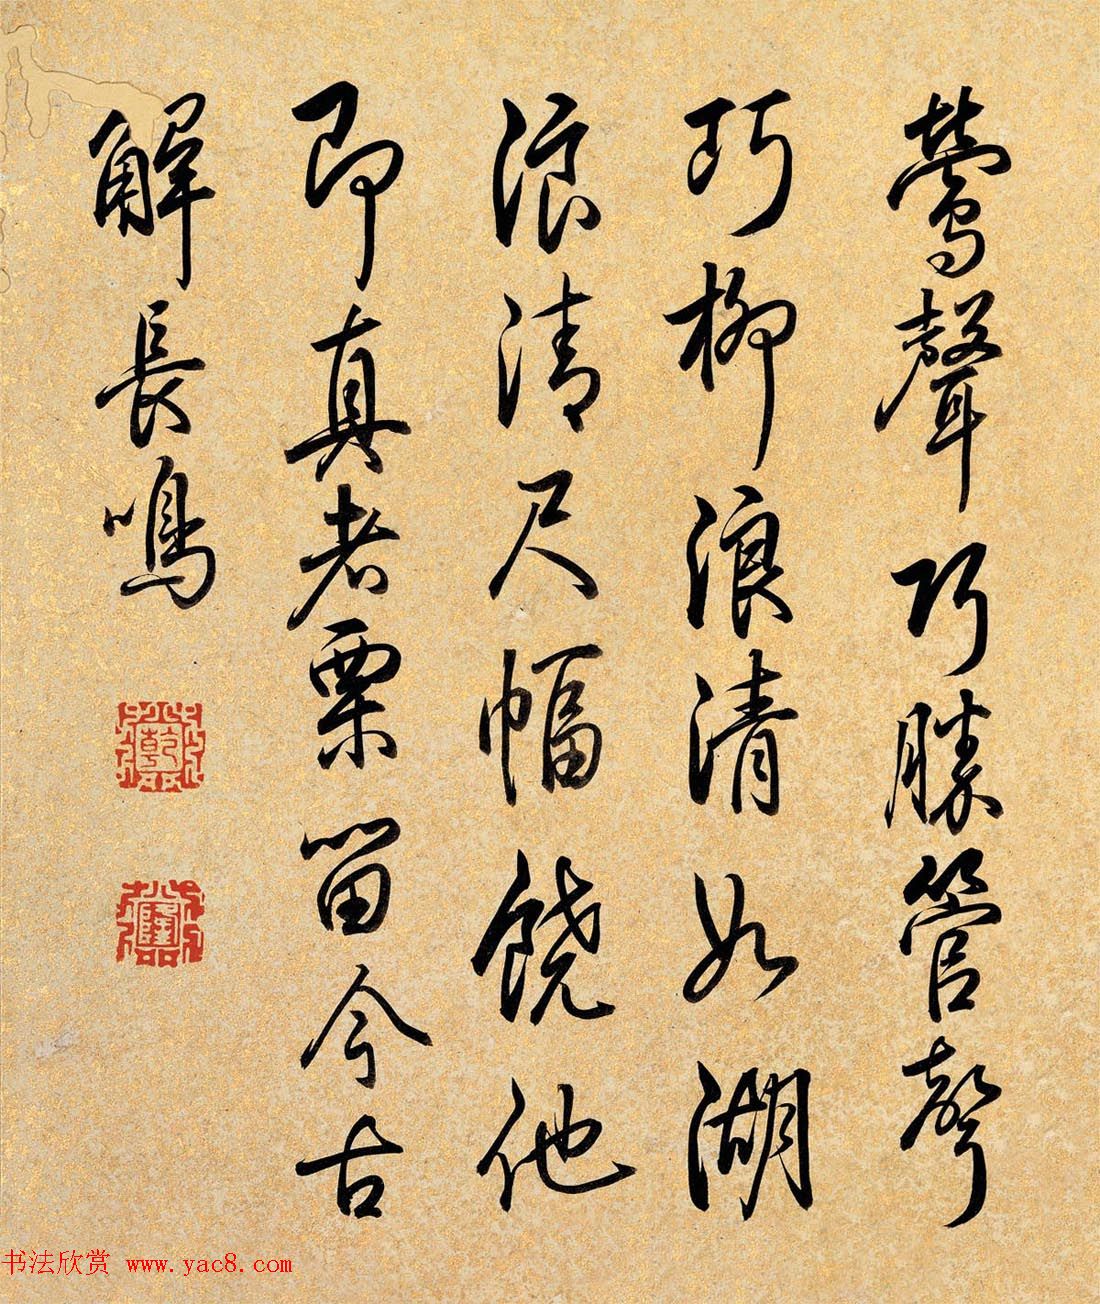 鶯聲巧勝管聲
巧柳浪清如湖
浪清尺幅饒他
即真者栗留今古
解長鳴
乾
隆
书法欣赏 www.yac8.com